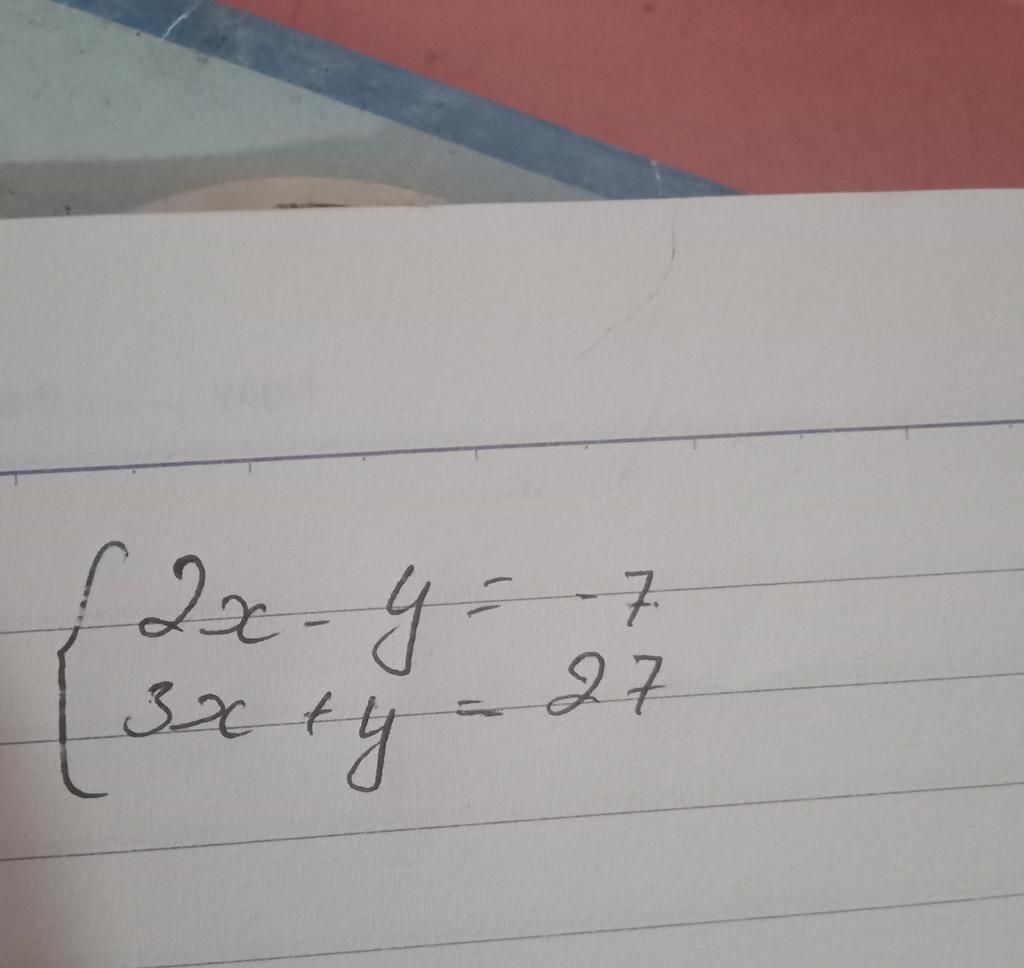 2x - y = -7
3x + y = 27